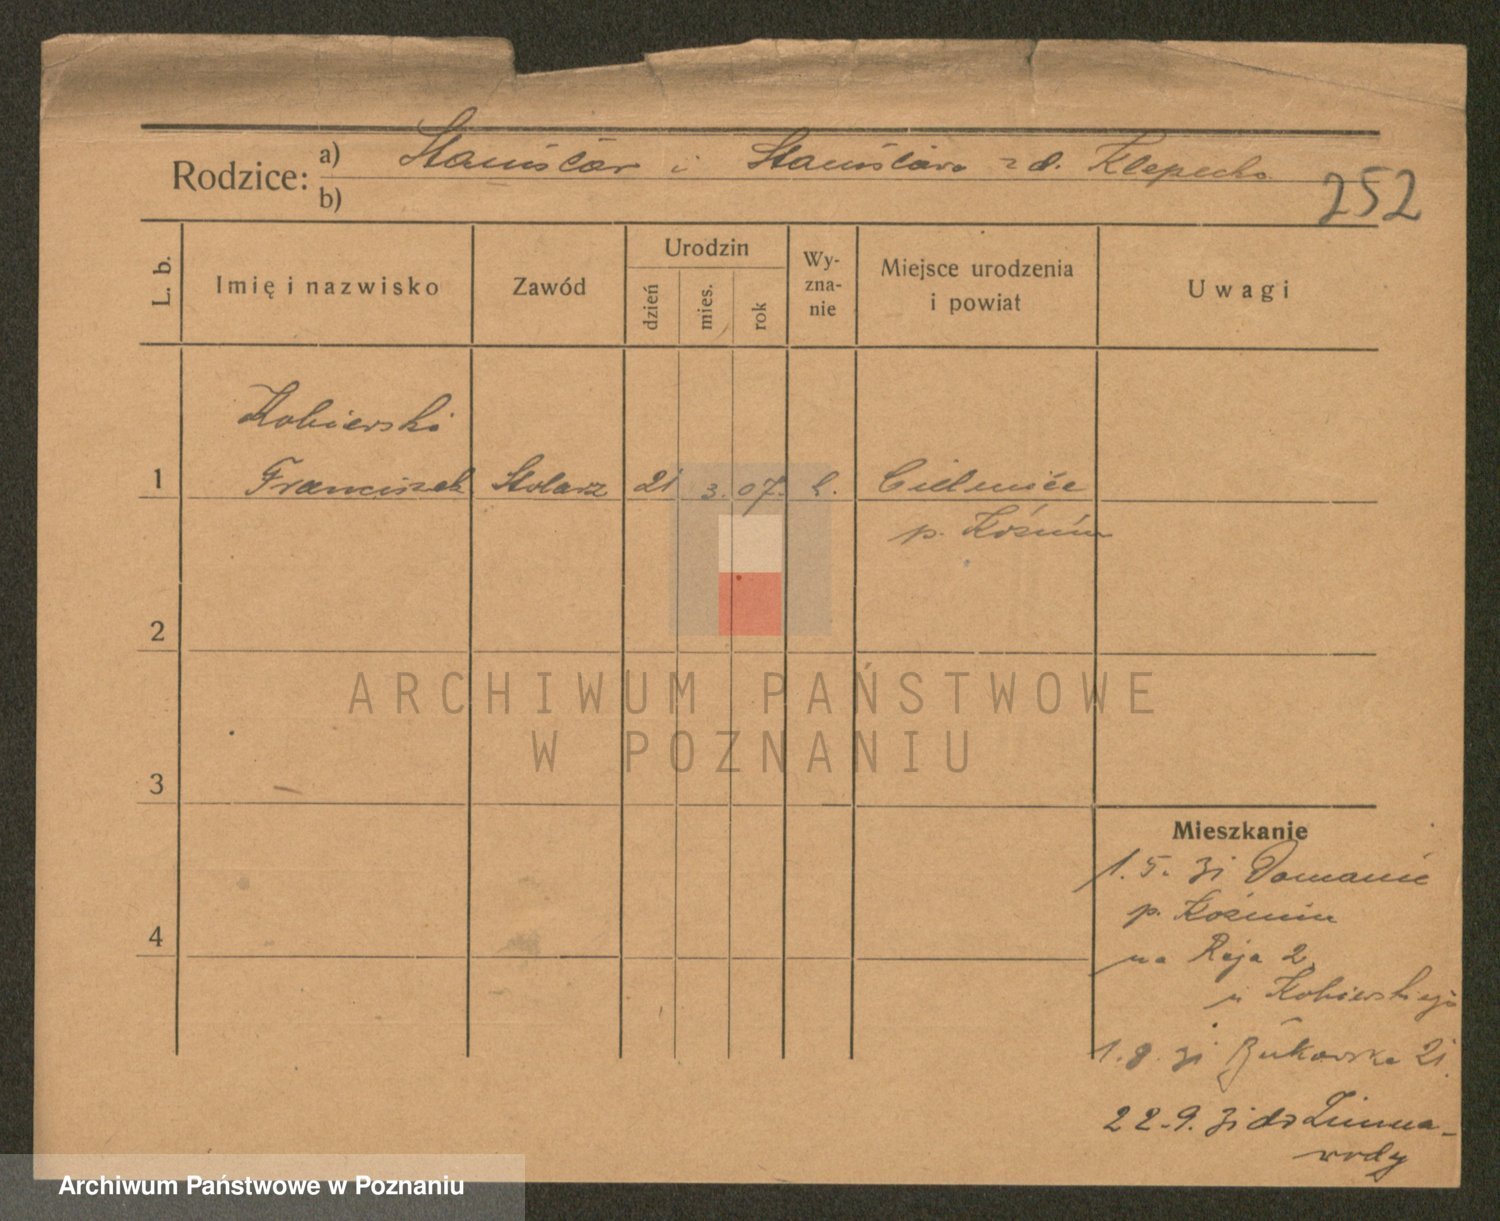 Rodzice: a) Stanisław i Stanisława z d. Klepecka
b)
252
L. b.
Imię i nazwisko
Zawód
Urodzin
dzień
mies.
rok
Wy-
zna-
nie
Miejsce urodzenia
i powiat
Uwagi
Kobierski
1 Franciszek Stolarz 21 3. 07. k.
p. Koźmin
2
3
4
Mieszkanie
1. 5. 31
p. Koźmin
na Reja 2
u Kobierskiego
1. 8. 31 Bukowska 21.
22. 9. 31 do Zimna-
wody
ARCHIWUM PAŃSTWOWE
W POZNANIU
Archiwum Państwowe w Poznaniu